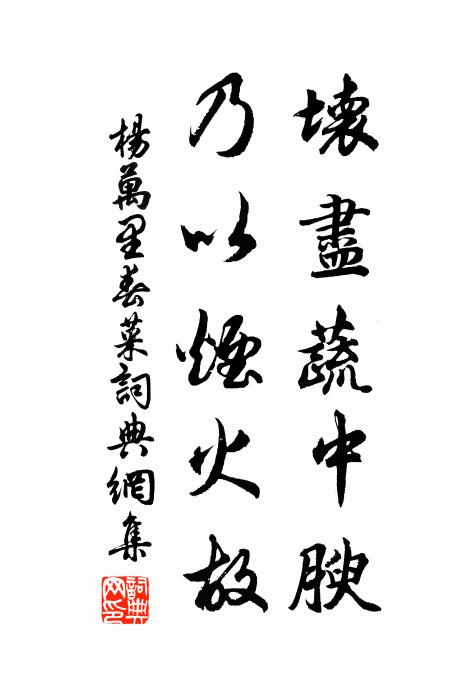 壞盡蔬中腴
乃以煙火故
楊萬里春菜詞典網集
詞典網印